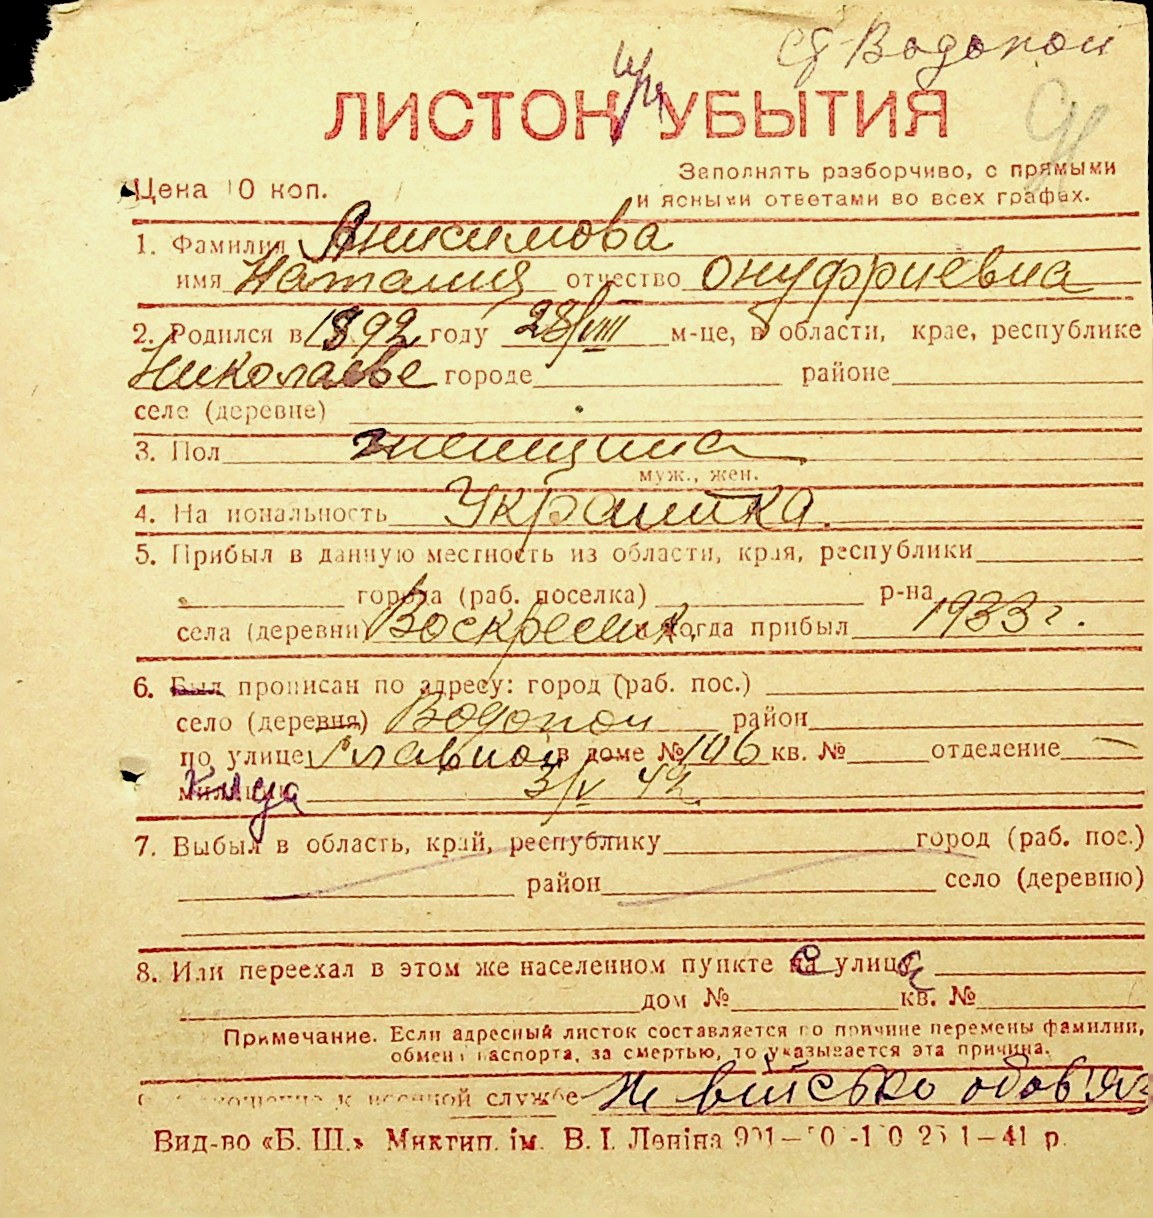 ст Водопой
ЛИСТОК УБЫТИЯ
Заполнять разборчиво, с прямыми
Цена 10 коп.
и ясными ответами во всех графах.
1. Фамилия Анисимова
имя Наталия отчество Онуфриевна
2. Родился в 1892 году 28/VIII м-це, в области, крае, республике
Николаеве городе районе
селе (деревне)
3. Пол женщина
муж., жен.
4. Национальность Украинка.
5. Прибыл в данную местность из области, края, республики
города (раб. поселка) р-на
села (деревни) Воскресенск когда прибыл 1933 г.
6. Был прописан по адресу: город (раб. пос.)
село (деревня) Водопой район
по улице Главной в доме № 106 кв. № отделение —
милиции 3/V 42
7. Выбыл в область, край, республику город (раб. пос.)
район село (деревню)
8. Или переехал в этом же населенном пункте на улицу
дом № кв. №
Примечание. Если адресный листок составляется по причине перемены фамилии,
обмена паспорта, за смертью, то указывается эта причина.
к военной службе Не військо обов'яз
Вид-во «Б. Ш.» Миктип. ім. В. І. Леніна 1–41 р.